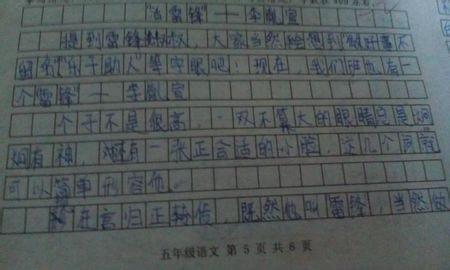 雷锋"——李胤宣
提到雷锋叔叔，大家当然会想到"做好事不
留名""乐于助人"等字眼吧！现在，我们班也有一
个"雷锋"——李胤宣
个子不是很高，一双不算大的眼睛总是炯
炯有神，还有一张正合适的小嘴，这几个词
可以简单形容他。
在言归正传，既然他叫"雷锋"，当然做
五年级语文 第 5 页 共 6 页